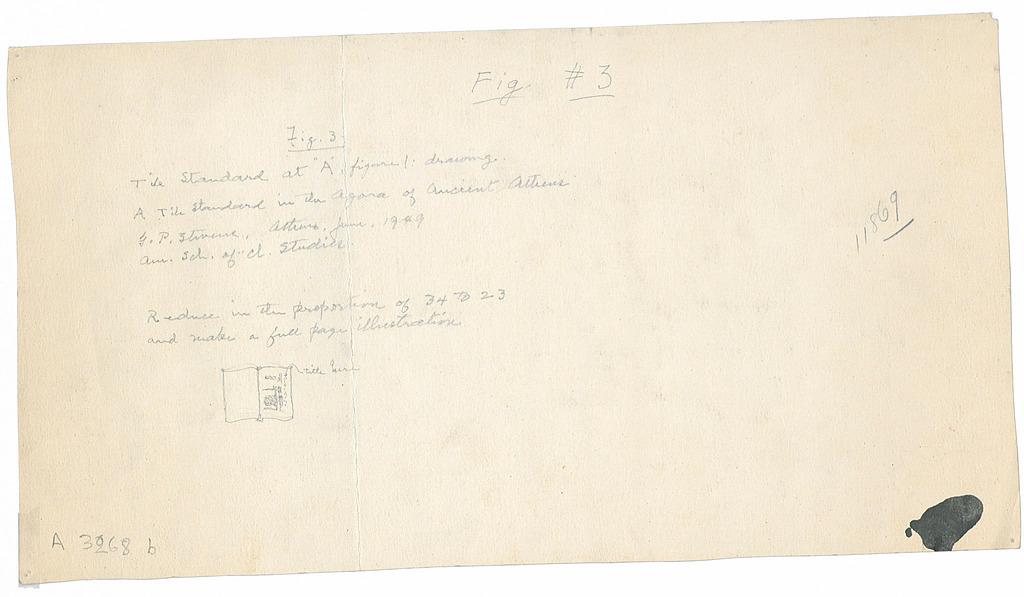 Fig #3
Fig. 3.
Tile Standard at "A", figure 1. drawing.
A Tile Standard in the Agora of Ancient Athens
G. P. Stevens, Athens, June, 1949
Am. Sch. of Cl. Studies.
11869
Reduce in the proportion of 34 to 23
and make a full page illustration
title here
A 3268 b